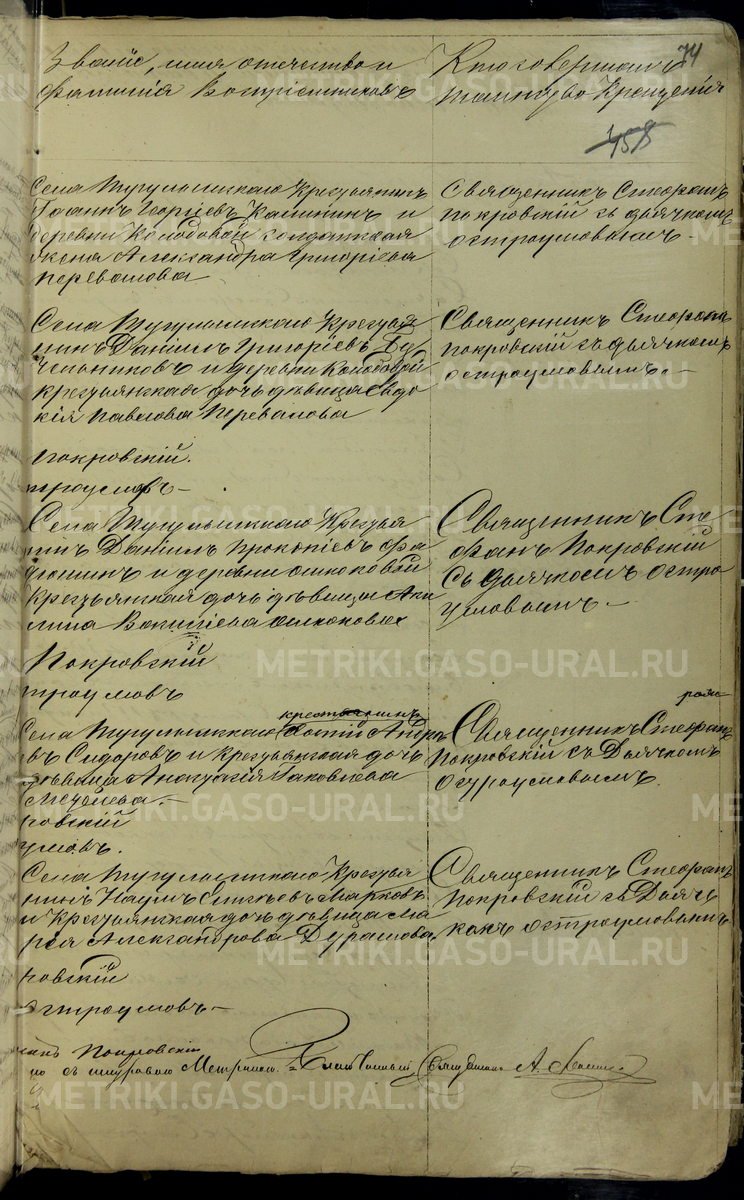 74
Званіе, имя отечество и
фамилія Воспріемниковъ
Кто совершалъ
таинство Крещенія
458
Села Тугулымскаго Крестьянинъ
Іоаннъ Георгіевъ Калининъ и
деревни Колобовой солдатская
жена Александра Григоріева
Перевалова
Священникъ Стефанъ
Покровскій съ дьячкомъ
Остроумовымъ.
Села Тугулымскаго Крестья
нинъ Даніилъ Григоріевъ
и деревни Колобовой
крестьянская дочь дѣвица Евдо
кія Павлова Перевалова
Священникъ Стефанъ
Покровскій съ дьячкомъ
Остроумовымъ.
Покровскій.
троумовъ
Села Тугулымскаго Крестья
нинъ Даніилъ Прокопіевъ
и деревни
Крестьянская дочь дѣвица Аки
лина
Священникъ Сте
фанъ Покровскій
съ дьячкомъ Остро
умовымъ.
Покровскій
троумовъ
крестьянинъ
Села Тугулымскаго
въ Сидоровъ и крестьянская дочь
дѣвица Анастасія Іаковлева
Священникъ Стефанъ
Покровскій съ Дьячкомъ
Остроумовымъ.
ровскій
умовъ.
Села Тугулымскаго Крестья
нинъ Наумъ Марковъ
и Крестьянская дочь дѣвица Ма
рія Александрова
Священникъ Стефанъ
Покровскій съ Дьяч
комъ Остроумовымъ
ровскій
строумовъ
Покровскій
Священникъ А.
METRIKI.GASO-URAL.RU